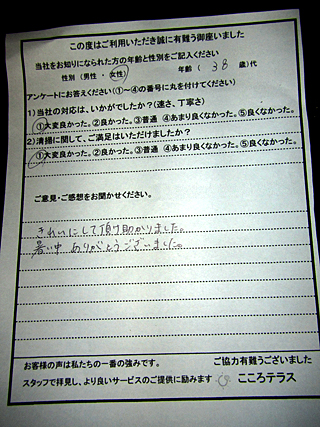 この度はご利用いただき誠に有難う御座いました
当社をお知りになられた方の年齢と性別をご記入ください
性別（男性・女性） 年齢（38歳）代
アンケートにお答えください（①～④の番号に丸を付けてください）
1）当社の対応は、いかがでしたか？（速さ、丁寧さ）
①大変良かった。②良かった。③普通 ④あまり良くなかった。⑤良くなかった。
2）清掃に関して、ご満足はいただけましたか？
①大変良かった。②良かった。③普通 ④あまり良くなかった。⑤良くなかった。
ご意見・ご感想をお聞かせください。
きれいにして頂け助かりました。
暑い中 ありがとうございました。
お客様の声は私たちの一番の強みです。 ご協力有難うございました
スタッフで拝見し、より良いサービスのご提供に励みます こころテラス